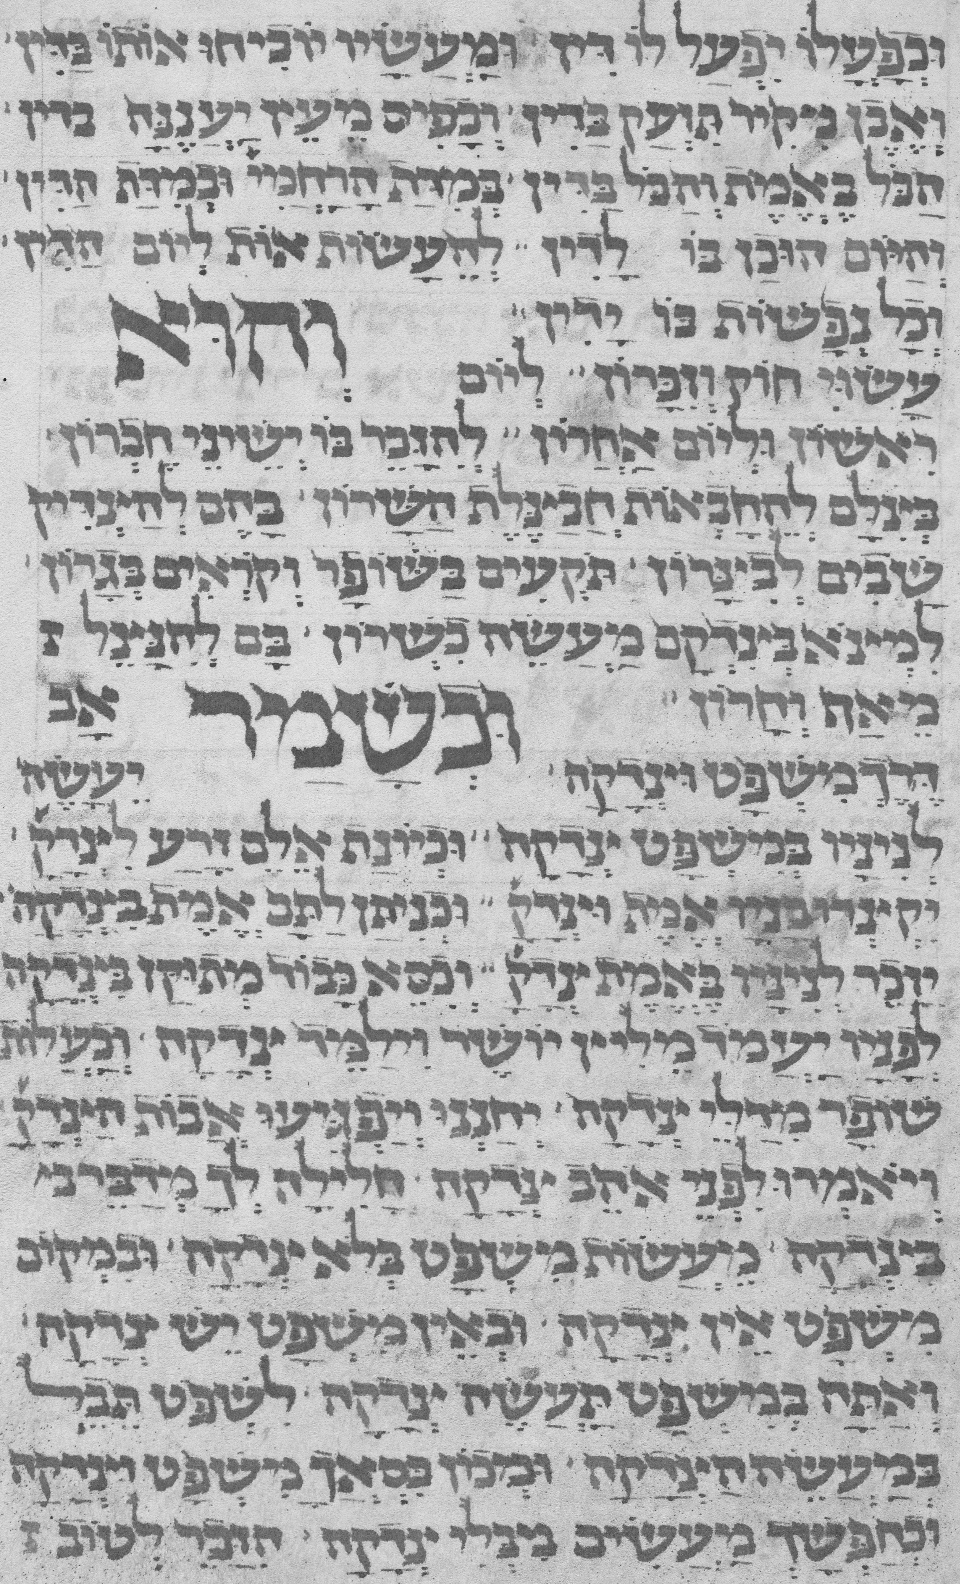 וּכְפָּעֳלוֹ יִפְעַל לוֹ דִּין · וּמַעֲשָׂיו יוֹכִיחוּ אוֹתוֹ בַּדִּין ·
וְאֶבֶן מִקִּיר תִּזְעַק בַּדִּין · וְכָפִיס מֵעֵץ יַעֲנֶנָּה בדין ·
הַכֹּל בֶּאֱמֶת וְהַכֹּל בַּדִּין · בְּמִדַּת הרחמי׳ וּבְמִדַּת הַדִּין ·
וְהַיּוֹם הוּכַן בּוֹ לָדִין ·· לְהֵעָשׂוֹת אוֹת לְיוֹם הַדִּין ·
וְכָל נְפָשׁוֹת בּוֹ יָדִין ··
וְהֶרֶא
עָשׂוּי חוֹק וְזִכָּרוֹן ·· לְיוֹם
רִאשׁוֹן וּלְיוֹם אַחֲרוֹן ·· לְהִזָּכֵר בּוֹ יְשֵׁינֵי חֶבְרוֹן ·
בְּצִלָּם לְהֵחָבְאוֹת חֲבַצֶּלֶת הַשָּׁרוֹן · בָּהֶם לְהִצָּדִיק
שָׁבִים לְבִצָּרוֹן · תֹּקְעִים בַּשּׁוֹפָר וְקֹרְאִים בְּגָרוֹן ·
לִמְצֹא בְצִדְקָם מַעֲשֵׂה כִּשְׁרוֹן · בָּם לְהִנָּצֵל
מֵאַף וְחָרוֹן ··
וּבְשָׁמְרוֹ אב
דֶּרֶךְ מִשְׁפָּט וּצְדָקָה · יַעֲשֶׂה
לְנִינָיו בְּמִשְׁפָּט צְדָקָה ·· וּכְיוֹנַת אֵלֶם זרע לִצְדָק׳ ·
יְקַו צָדוּ בניו אֱמֶת וּצְדָק׳ ·· וּכְנִיתַּן לְתָּם אֱמֶת בִּצְדָקָה ·
יִזְכֹּר לְנִינָיו בֶּאֱמֶת צְדָק׳ ·· וְכִסֵּא כָבוֹד מְתוּקָּן בִּצְדָקָה
לְפָנָיו יַעֲמֹד מֵלִיץ יוֹשֶׁר וִילַמֵּד צְדָקָה · וּבַעֲלוֹת
שׁוֹפָר מִדַּלֵּי צְדָקָה · יְחָנֵנוּ וְיַפְגִּיעוּ אָבוֹת הַצְּדָק׳
וְיֹאמְרוּ לִפְנֵי אֹהֵב צְדָקָה · חָלִילָה לְּךָ מְדַבֵּר בִּ
בִּצְדָקָה · מֵעֲשׂוֹת מִשְׁפָּט בְּלֹא צְדָקָה · וּבִמְקוֹם
מִשְׁפָּט אֵין צְדָקָה · וּבְאֵין מִשְׁפָּט יֵשׁ צְדָקָה ·
וְאַתָּה בְּמִשְׁפָּט תַּעֲשֶׂה צְדָקָה · לִשְׁפֹּט תֵּבֵל
בְּמַעֲשֵׂה הַצְּדָקָה · וּמְכוֹן כִּסְאָךְ מִשְׁפָּט וּצְדָקָה
וּכְחָפְּשָׂךְ מַעֲשִׂים מִבְּלִי צְדָקָה · הִזָּכֵר לְטוֹב